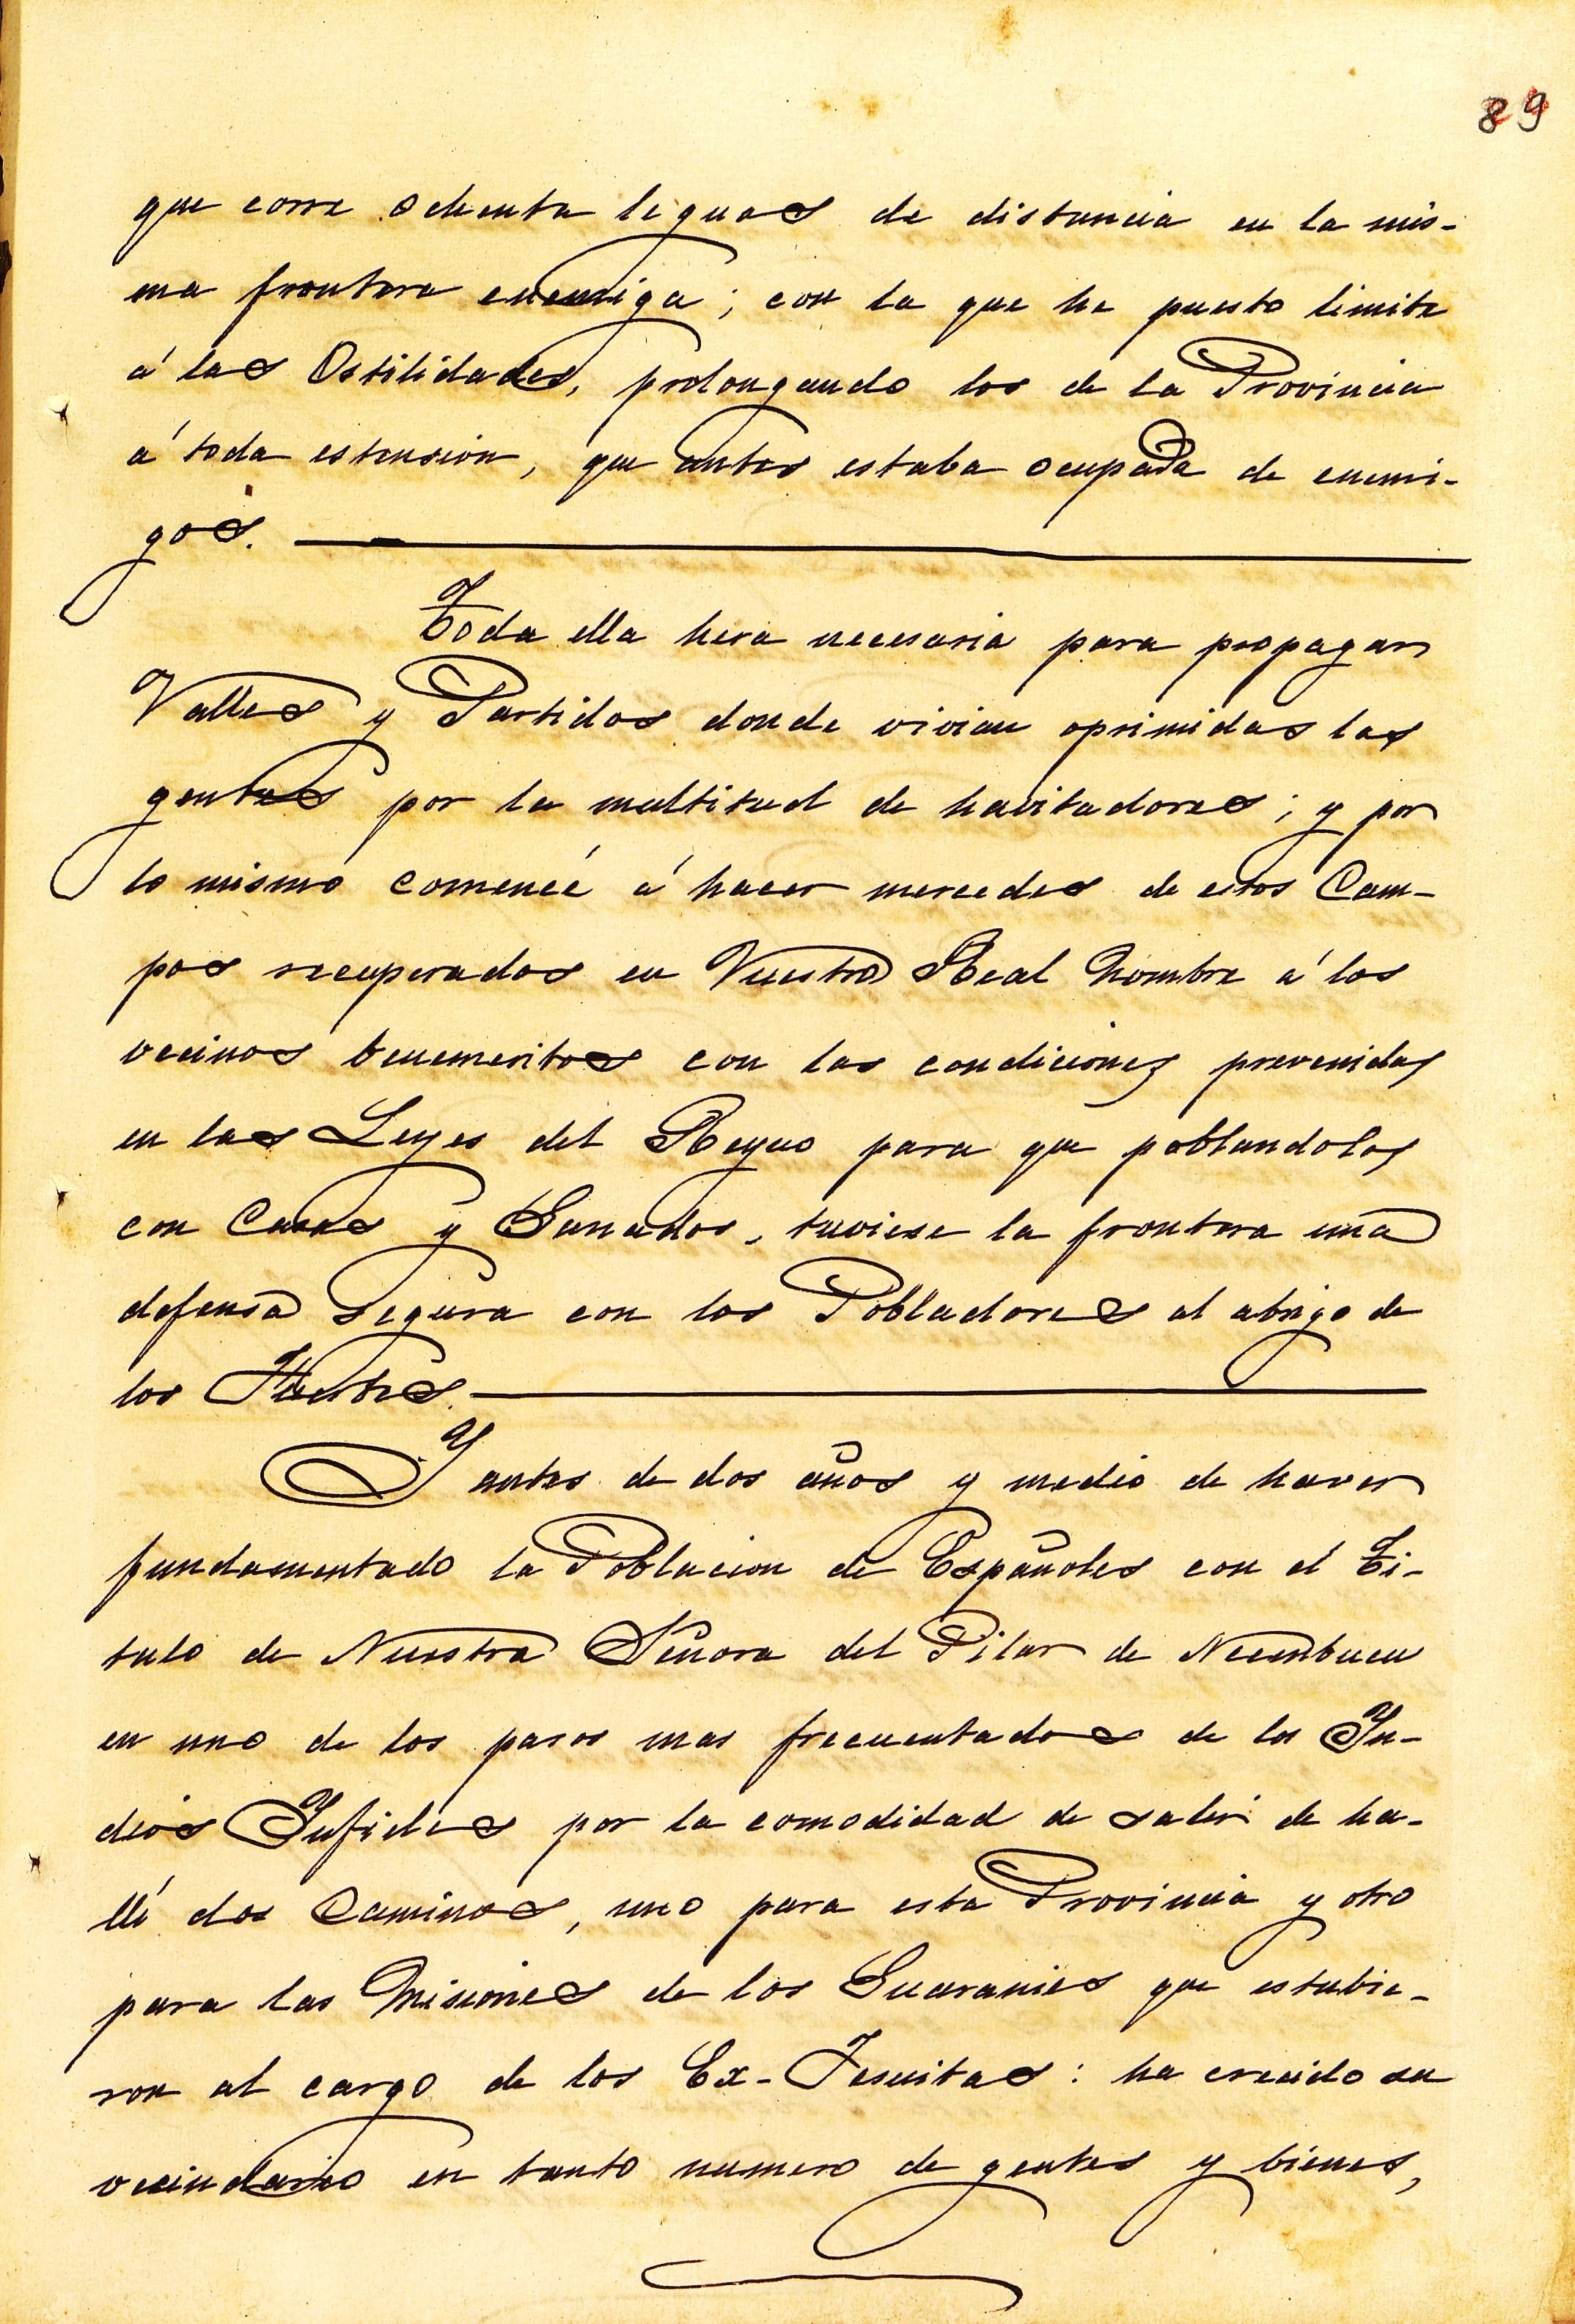 89
que corre ochenta leguas de distancia en la mis-
ma frontera enemiga; con la que he puesto limite
á las Ostilidades, prolongando los de la Provincia
á toda estension, que antes estaba ocupada de enemi-
gos.
Toda ella hera necesaria para propagar
Valles y Partidos donde vivian oprimidas las
gentes por la multitud de havitadores; y por
lo mismo comencé á hacer mercedes de estos Cam-
pos recuperados en Vuestro Real Nombre á los
vecinos benemeritos con las condiciones prevenidas
en las Leyes del Reyno para que poblandolos
con Casas y Ganados, tuviese la frontera una
defensa segura con los Pobladores al abrigo de
los Fuertes.
Y antes de dos años y medio de haver
fundamentado la Poblacion de Españoles con el Ti-
tulo de Nuestra Señora del Pilar de Neembucu
en uno de los pasos mas frecuentados de los In-
dios Infieles por la comodidad de salir de ha-
llí dos Caminos, uno para esta Provincia y otro
para las Misiones de los Guaranies que estubie-
ron al cargo de los Ex-Jesuitas: ha crecido su
vecindario en tanto numero de gentes y bienes,